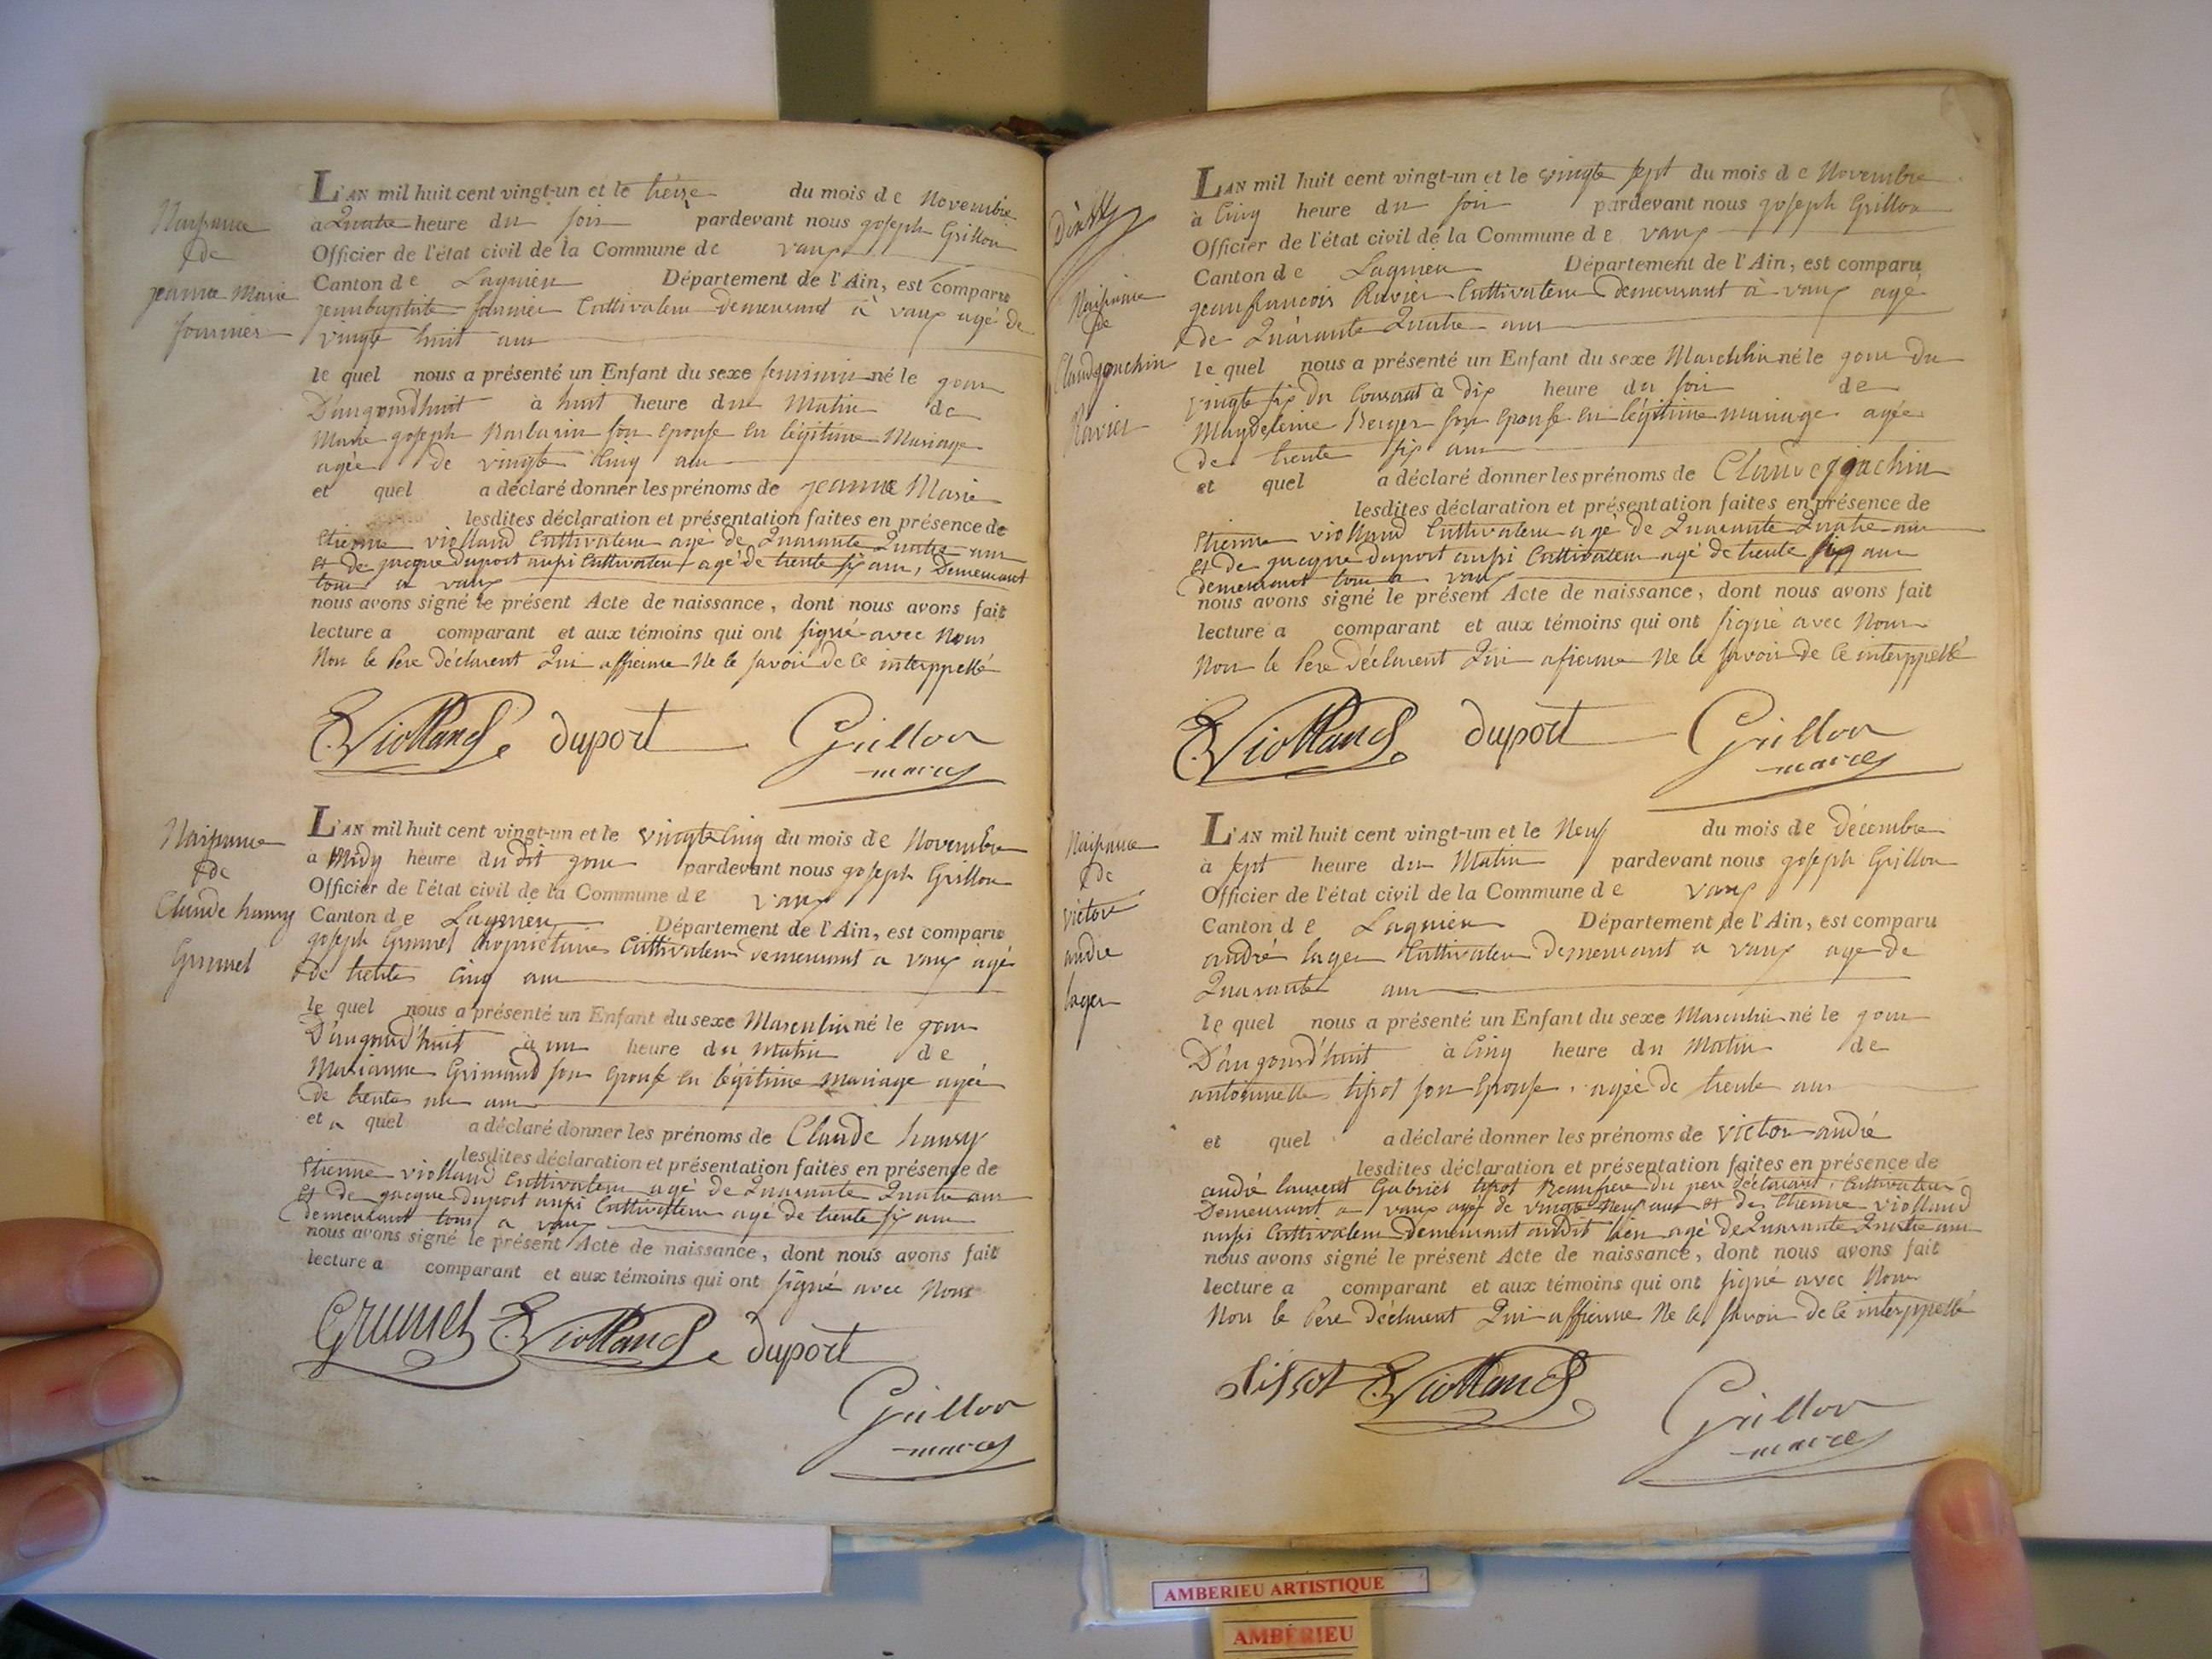 Naissance
de
jeanne Marie
fournier
L'AN mil huit cent vingt-un et le treize du mois de Novembre
à Quatre heure du soir pardevant nous joseph Grillon
Officier de l'état civil de la Commune de vaux
Canton de Lagnieu Département de l'Ain, est comparu
jeanbaptiste fournier Cultivateur demeurant à vaux agé de
vingte huit ans
le quel nous a présenté un Enfant du sexe feminin né le jour
D'aujourdhuit à huit heure du Matin de
Marie joseph son epouse en légitime Mariage
agée de vingte Cinq ans
et quel a déclaré donner les prénoms de jeanne Marie
lesdites déclaration et présentation faites en présence de
Etienne violland Cultivateur agé de Quarante Quatre ans
et de jacque duport aussi Cultivateur agé de trente six ans, Demeurant
tous a vaux
nous avons signé le présent Acte de naissance, dont nous avons fait
lecture a comparant et aux témoins qui ont signé avec Nous
Non le Pere déclarent Qui affierme Ne le savoir de ce interppellé
E. Violland duport Grillon
maire
Naissance
de
Claude hanry
Grumel
L'AN mil huit cent vingt-un et le vingte Cinq du mois de Novembre
à Midy heure du dit jour pardevant nous joseph Grillon
Officier de l'état civil de la Commune de vaux
Canton de Lagnieu Département de l'Ain, est comparu
joseph Grumel Propriétaire Cultivateur demeurant a vaux agé
de trente Cinq ans
le quel nous a présenté un Enfant du sexe Masculin né le jour
D'aujourd'huit à un heure du Matin de
Marianne Grimaud son Epouse en légitime mariage agée
de trente un ans
et a quel a déclaré donner les prénoms de Claude hanry
lesdites déclaration et présentation faites en présence de
Etienne violland Cultivateur agé de Quarante Quatre ans
et de jacque duport aussi Cultivateur agé de trente six ans
demeurant tous a vaux
nous avons signé le présent Acte de naissance, dont nous avons fait
lecture a comparant et aux témoins qui ont signé avec Nous
Grumel E. Violland duport
Grillon
maire
Naissance
de
Claudejouchin
Ravier
L'AN mil huit cent vingt-un et le vingte sept du mois de Novembre
à Cinq heure du soir pardevant nous joseph Grillon
Officier de l'état civil de la Commune de vaux
Canton de Lagnieu Département de l'Ain, est comparu
jeanfrancois Ravier Cultivateur Demeurant à vaux agé
de Quarante Quatre ans
le quel nous a présenté un Enfant du sexe Masculin né le jour du
vingte six du Courant à dix heure du soir de
Magdeleine Berger son Epouse en légitime mariage agée
de trente six ans
et quel a déclaré donner les prénoms de Claude jouchin
lesdites déclaration et présentation faites en présence de
Etienne violland Cultivateur agé de Quarante Quatre ans
et de jacque duport aussi Cultivateur agé de trente six ans
demeurant tous a vaux
nous avons signé le présent Acte de naissance, dont nous avons fait
lecture a comparant et aux témoins qui ont signé avec Nous
Non le Pere déclarent Qui afierme Ne le savoir de ce interppellé
E. Violland duport Grillon
maire
Naissance
de
victore
andré
lager
L'AN mil huit cent vingt-un et le Neuf du mois de décembre
à sept heure du Matin pardevant nous joseph Grillon
Officier de l'état civil de la Commune de vaux
Canton de Lagnieu Département de l'Ain, est comparu
andré lager Cultivateur Demeurant a vaux agé de
Quarante ans
le quel nous a présenté un Enfant du sexe Masculin né le jour
D'aujourd'huit à Cinq heure du Matin de
antoinette tisot son Epouse, agée de trente ans
et quel a déclaré donner les prénoms de victor andré
lesdites déclaration et présentation faites en présence de
andré laurent Gabriel tisot Beaufrere du pere déclarant, Cultivateur
Demeurant a vaux agé de vingte Neuf ans et de Etienne violland
aussi Cultivateur Demeurant audit lieu agé de Quarante Quatre ans
nous avons signé le présent Acte de naissance, dont nous avons fait
lecture a comparant et aux témoins qui ont signé avec Nous
Non le Pere déclarent Qui affierme Ne le savoir de ce interppellé
tissot E. Violland Grillon
maire
AMBERIEU ARTISTIQUE
AMBÉRIEU